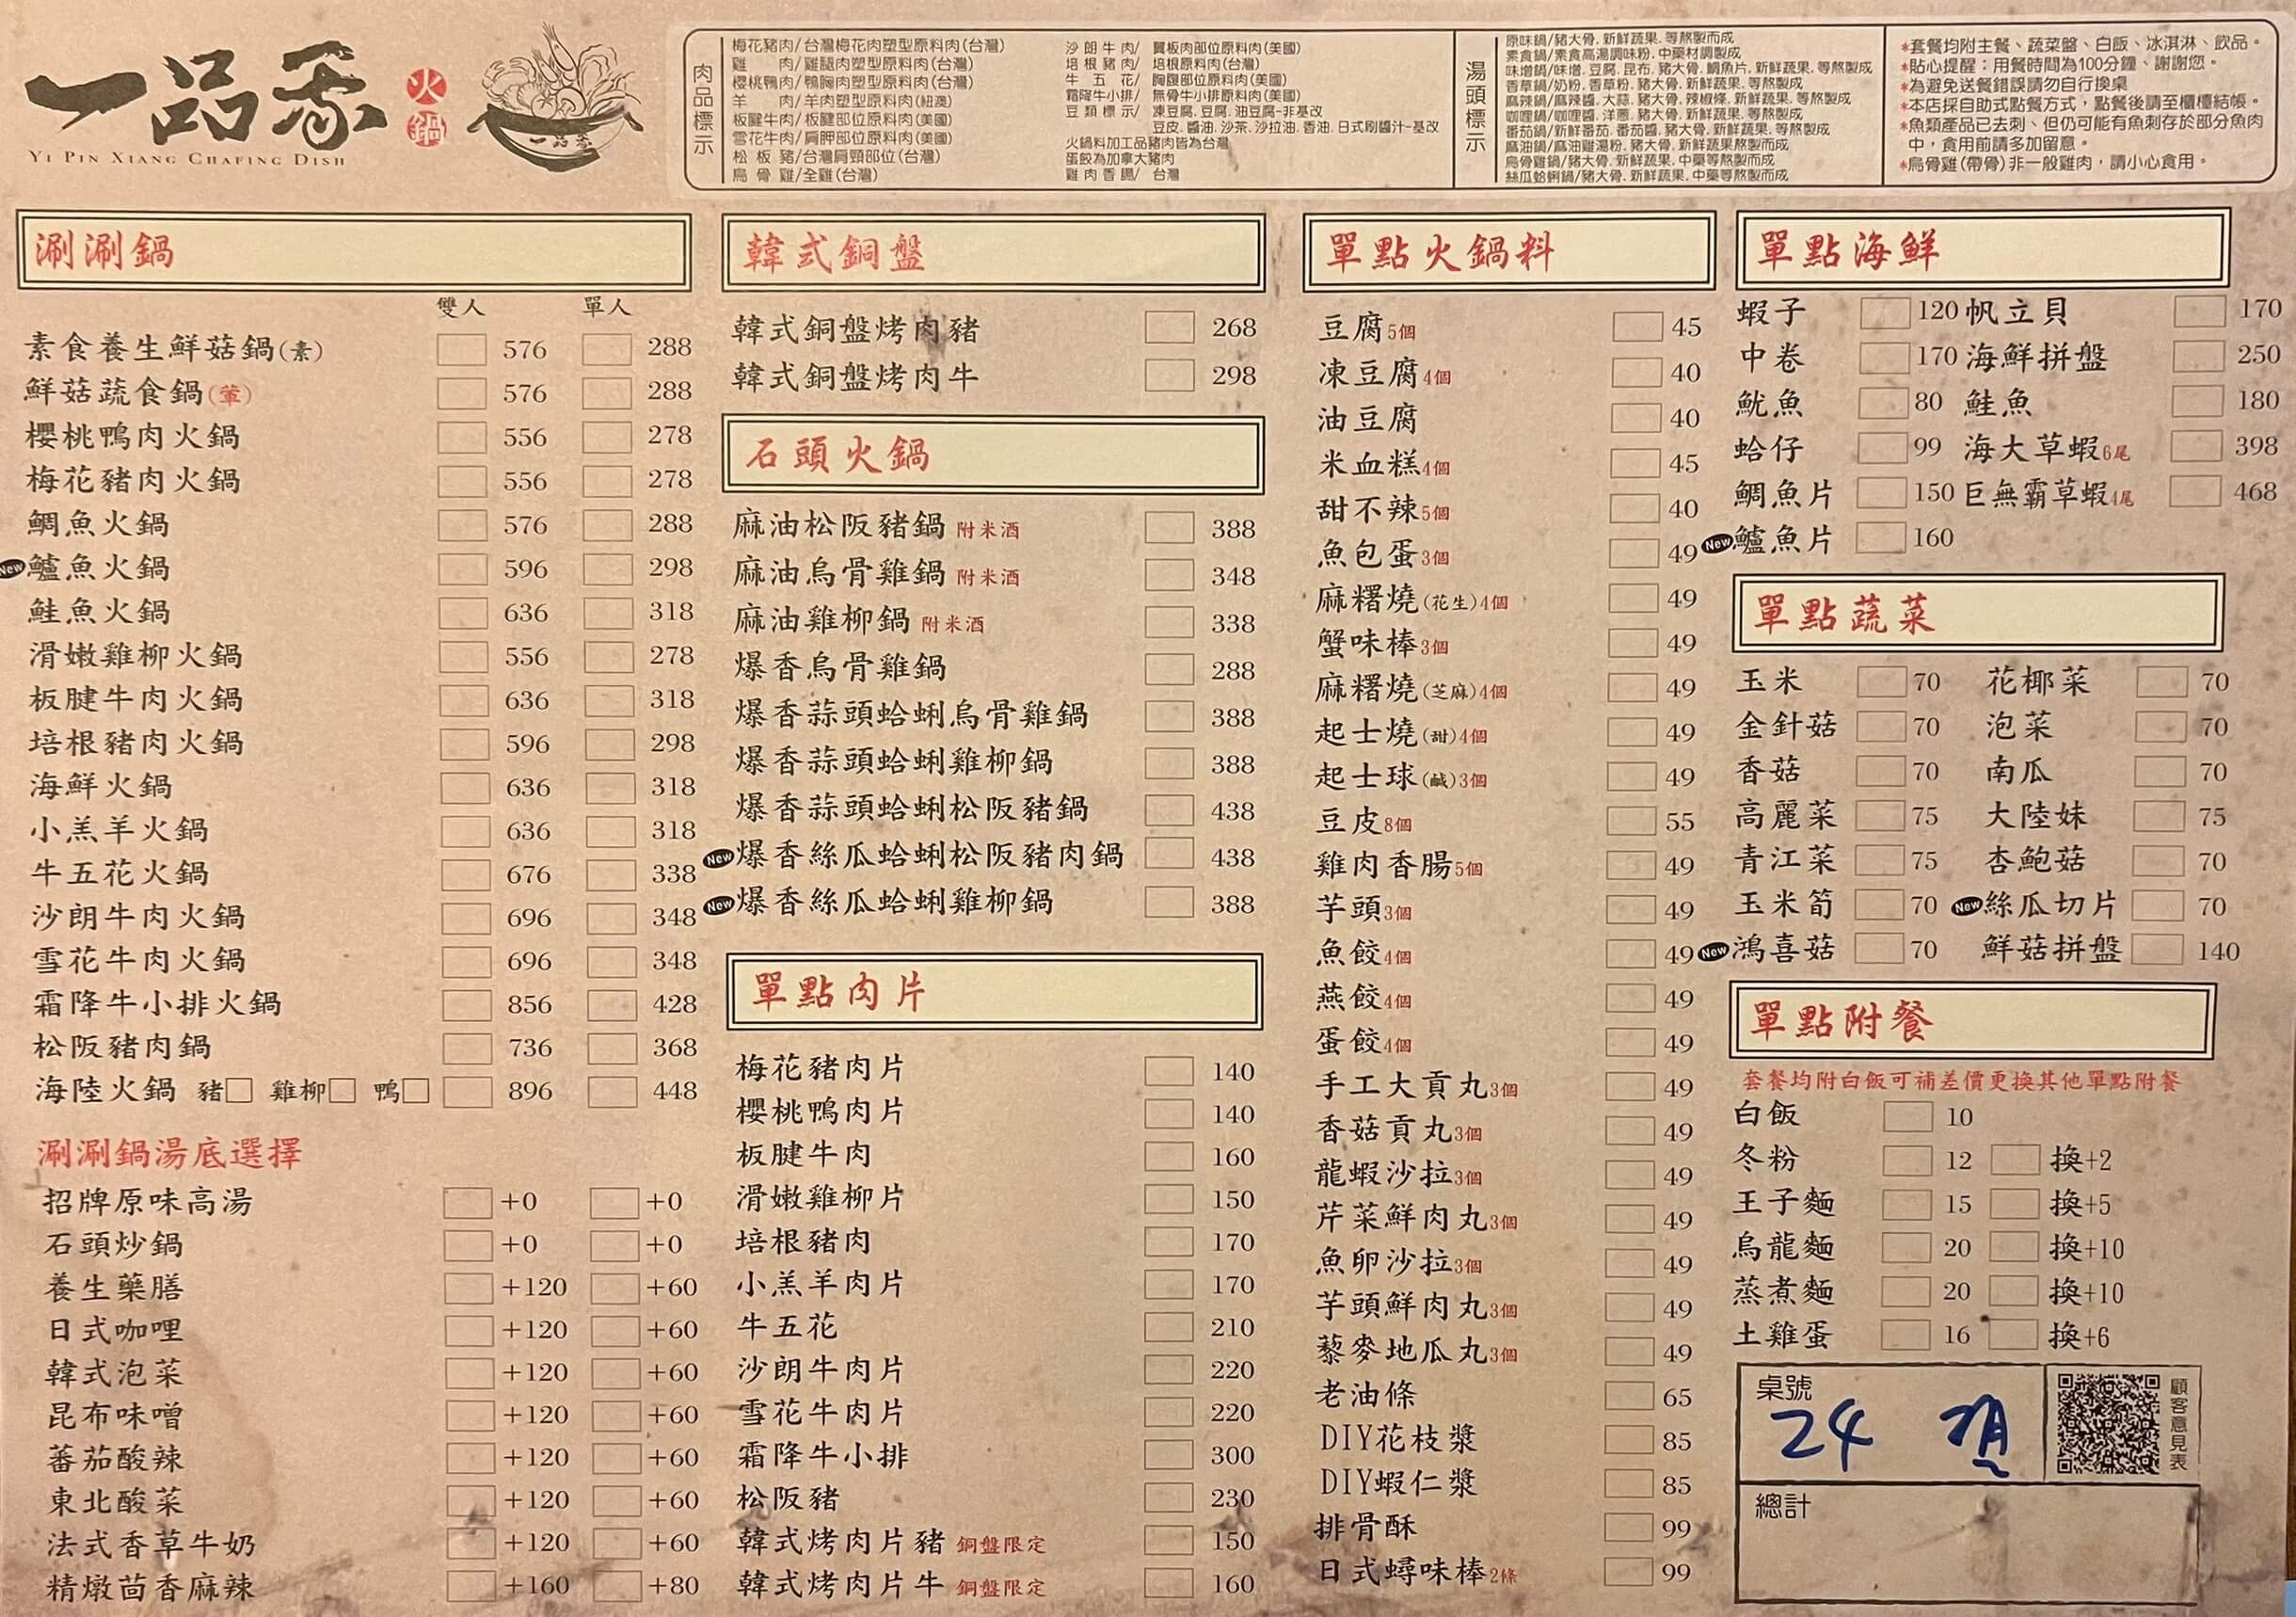 一品香
火鍋
YI PIN XIANG CHAFING DISH
肉品標示
梅花豬肉/台灣梅花肉塑型原料肉(台灣)
雞 肉/雞腿肉塑型原料肉(台灣)
櫻桃鴨肉/鴨胸肉塑型原料肉(台灣)
羊 肉/羊肉塑型原料肉(紐澳)
板腱牛肉/板腱部位原料肉(美國)
雪花牛肉/肩胛部位原料肉(美國)
松 板 豬/台灣肩頸部位(台灣)
烏 骨 雞/全雞(台灣)
沙 朗 牛 肉/ 翼板肉部位原料肉(美國)
培 根 豬 肉/ 培根原料肉(台灣)
牛 五 花/ 胸腹部位原料肉(美國)
霜降牛小排/ 無骨牛小排原料肉(美國)
豆 類 標 示/ 凍豆腐.豆腐.油豆腐-非基改
豆皮.醬油.沙茶.沙拉油.香油.日式刷醬汁-基改
火鍋料加工品豬肉皆為台灣
蛋餃為加拿大豬肉
雞 肉 香 腸/ 台灣
湯頭標示
原味鍋/豬大骨.新鮮蔬果.等熬製而成
素食鍋/素食高湯調味粉.中藥材調製成
味增鍋/味增.豆腐.昆布.豬大骨.鯛魚片.新鮮蔬果.等熬製而成
香草鍋/奶粉.香草粉.豬大骨.新鮮蔬果.等熬製成
麻辣鍋/麻辣醬.大蒜.豬大骨.辣椒條.新鮮蔬果.等熬製成
咖哩鍋/咖哩醬.洋蔥.豬大骨.新鮮蔬果.等熬製成
番茄鍋/新鮮番茄.番茄醬.豬大骨.新鮮蔬果.等熬製成
麻油鍋/麻油雞湯粉.豬大骨.新鮮蔬果.等熬製而成
烏骨雞鍋/豬大骨.新鮮蔬果.中藥等熬製而成
絲瓜蛤蜊鍋/豬大骨.新鮮蔬果.中藥等熬製而成
*套餐均附主餐、蔬菜盤、白飯、冰淇淋、飲品。
*貼心提醒：用餐時間為100分鐘、謝謝您。
*為避免送餐錯誤請勿自行換桌
*本店採自助式點餐方式，點餐後請至櫃檯結帳。
*魚類產品已去刺、但仍可能有魚刺存於部分魚肉
中，食用前請多加留意。
*烏骨雞(帶骨)非一般雞肉，請小心食用。
涮涮鍋
雙人 單人
素食養生鮮菇鍋(素) 576 288
鮮菇蔬食鍋(葷) 576 288
櫻桃鴨肉火鍋 556 278
梅花豬肉火鍋 556 278
鯛魚火鍋 576 288
New 鱸魚火鍋 596 298
鮭魚火鍋 636 318
滑嫩雞柳火鍋 556 278
板腱牛肉火鍋 636 318
培根豬肉火鍋 596 298
海鮮火鍋 636 318
小羔羊火鍋 636 318
牛五花火鍋 676 338
沙朗牛肉火鍋 696 348
雪花牛肉火鍋 696 348
霜降牛小排火鍋 856 428
松阪豬肉鍋 736 368
海陸火鍋 豬 雞柳 鴨 896 448
涮涮鍋湯底選擇
招牌原味高湯 +0 +0
石頭炒鍋 +0 +0
養生藥膳 +120 +60
日式咖哩 +120 +60
韓式泡菜 +120 +60
昆布味噌 +120 +60
蕃茄酸辣 +120 +60
東北酸菜 +120 +60
法式香草牛奶 +120 +60
精燉茴香麻辣 +160 +80
韓式銅盤
韓式銅盤烤肉豬 268
韓式銅盤烤肉牛 298
石頭火鍋
麻油松阪豬鍋 附米酒 388
麻油烏骨雞鍋 附米酒 348
麻油雞柳鍋 附米酒 338
爆香烏骨雞鍋 288
爆香蒜頭蛤蜊烏骨雞鍋 388
爆香蒜頭蛤蜊雞柳鍋 388
爆香蒜頭蛤蜊松阪豬鍋 438
New 爆香絲瓜蛤蜊松阪豬肉鍋 438
New 爆香絲瓜蛤蜊雞柳鍋 388
單點肉片
梅花豬肉片 140
櫻桃鴨肉片 140
板腱牛肉 160
滑嫩雞柳片 150
培根豬肉 170
小羔羊肉片 170
牛五花 210
沙朗牛肉片 220
雪花牛肉片 220
霜降牛小排 300
松阪豬 230
韓式烤肉片豬 銅盤限定 150
韓式烤肉片牛 銅盤限定 160
單點火鍋料
豆腐5個 45
凍豆腐4個 40
油豆腐 40
米血糕4個 45
甜不辣5個 40
魚包蛋3個 49
麻糬燒(花生)4個 49
蟹味棒3個 49
麻糬燒(芝麻)4個 49
起士燒(甜)4個 49
起士球(鹹)3個 49
豆皮8個 55
雞肉香腸5個 49
芋頭3個 49
魚餃4個 49
燕餃4個 49
蛋餃4個 49
手工大貢丸3個 49
香菇貢丸3個 49
龍蝦沙拉3個 49
芹菜鮮肉丸3個 49
魚卵沙拉3個 49
芋頭鮮肉丸3個 49
藜麥地瓜丸3個 49
老油條 65
DIY花枝漿 85
DIY蝦仁漿 85
排骨酥 99
日式蟳味棒2條 99
單點海鮮
蝦子 120 帆立貝 170
中卷 170 海鮮拼盤 250
魷魚 80 鮭魚 180
蛤仔 99 海大草蝦6尾 398
鯛魚片 150 巨無霸草蝦4尾 468
New 鱸魚片 160
單點蔬菜
玉米 70 花椰菜 70
金針菇 70 泡菜 70
香菇 70 南瓜 70
高麗菜 75 大陸妹 75
青江菜 75 杏鮑菇 70
玉米筍 70 New 絲瓜切片 70
New 鴻喜菇 70 鮮菇拼盤 140
單點附餐
套餐均附白飯可補差價更換其他單點附餐
白飯 10
冬粉 12 換+2
王子麵 15 換+5
烏龍麵 20 換+10
蒸煮麵 20 換+10
土雞蛋 16 換+6
桌號
24
顧客意見表
總計